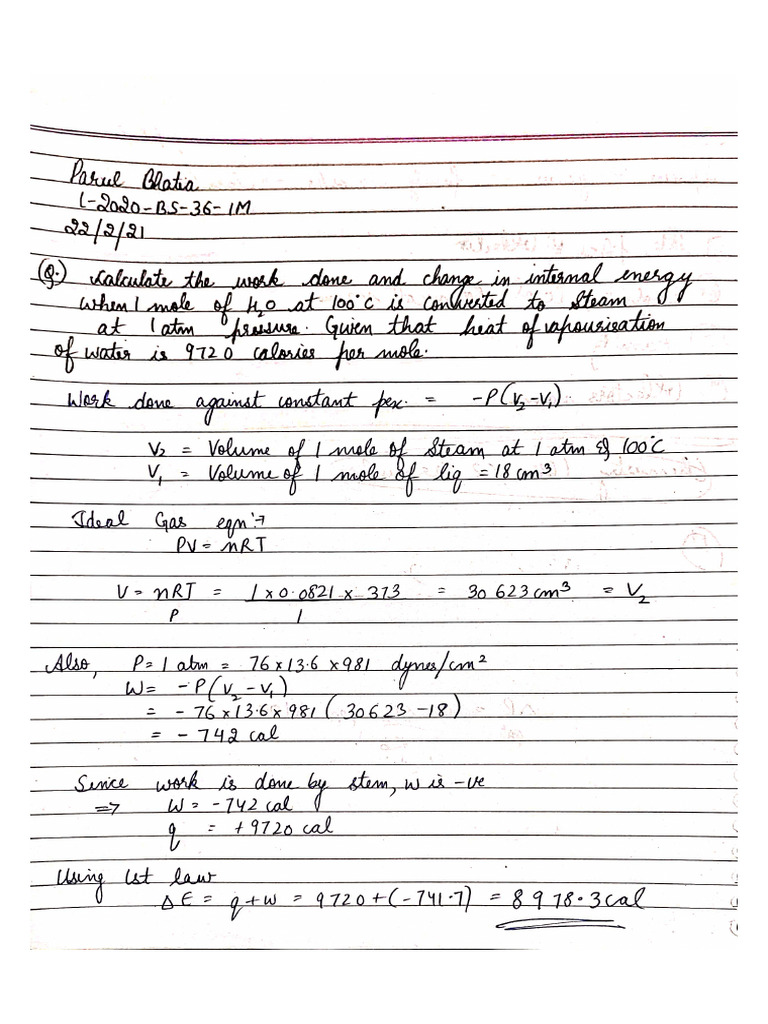 Parul Bhatia
L-2020-BS-36-IM
22/2/21
(Q.) Calculate the work done and change in internal energy
when 1 mole of H2O at 100°C is converted to steam
at 1 atm pressure. Given that heat of vapourisation
of water is 9720 calories per mole.
Work done against constant pex. = -P(V2-V1)
V2 = Volume of 1 mole of steam at 1 atm & 100°C
V1 = Volume of 1 mole of liq = 18 cm³
Ideal Gas eqn:→
PV = nRT
V = nRT = 1 x 0.0821 x 373 = 30 623 cm³ = V2
P 1
Also, P = 1 atm = 76 x 13.6 x 981 dynes/cm²
W = -P(V2-V1)
= - 76 x 13.6 x 981 (30623 - 18)
= - 742 cal
Sence work is done by stem, W is -ve
=> W = -742 cal
q = + 9720 cal
Using 1st law
ΔE = q+w = 9720+(-741.7) = 8978.3 cal